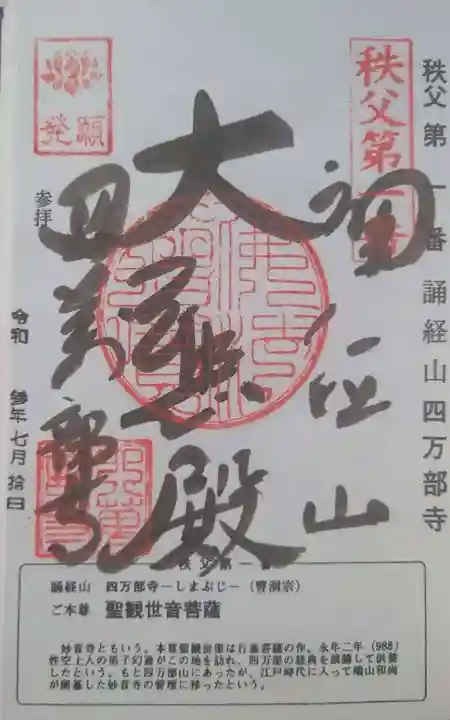 秩父第一番 誦経山 四万部寺
秩父第一番
誦経山
大慈殿
四萬部寺
発願
参拝
令和 参年七月拾日
秩父第一番
誦経山 四万部寺―しまぶじ―(曹洞宗)
ご本尊 聖観世音菩薩
妙音寺ともいう。本尊聖観世音は行基菩薩の作。永年二年(988)
性空上人の弟子幻通がこの地を訪れ、四万部の経典を読誦して供養
したという。もと四万部山にあったが、江戸時代に入って端山和尚
が開基した妙音寺の管理に移ったという。